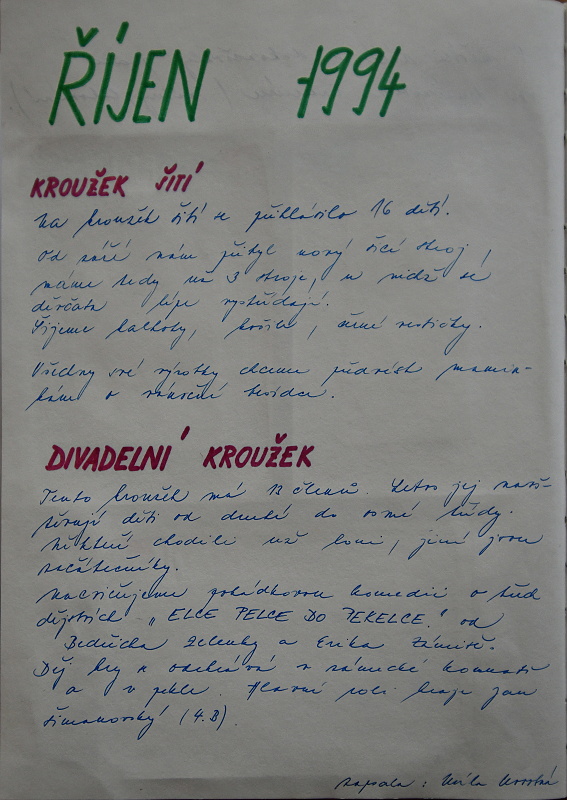 ŘÍJEN 1994
KROUŽEK ŠITÍ
Na kroužek šití se přihlásilo 16 dětí.
Od září nám přibyl nový šicí stroj,
máme tedy už 3 stroje, u nichž se
děvčata lépe vystřídají.
Šijeme kalhoty, košile, různé vestičky.
Všechny své výrobky chceme předvést mamin-
kám o vánoční besídce.
DIVADELNÍ KROUŽEK
Tento kroužek má 13 členů. Letos jej navš-
těvují děti od druhé do osmé třídy.
Někteří chodili už loni, jiní jsou
začátečníky.
Nacvičujeme pohádkovou komedii o třech
dějstvích "ELCE PELCE DO PEKELCE." od
Bedřicha Zelenky a Erika
Děj hry se odehrává v zámecké komnatě
a v pekle. Hlavní roli hraje Jan
Šimanovský (4.B).
zapsala: